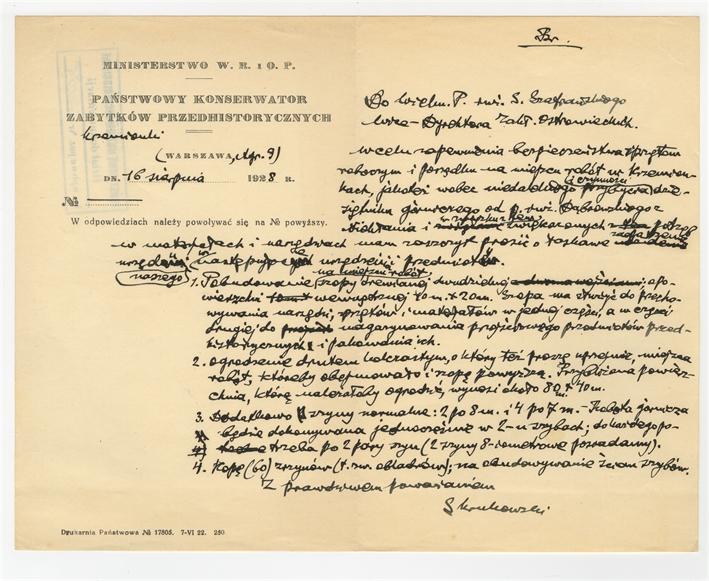 Br.
MINISTERSTWO W. R. i O. P.
PAŃSTWOWY KONSERWATOR
ZABYTKÓW PRZEDHISTORYCZNYCH
Krzemionki
(WARSZAWA, Agr. 9)
DN. 16 sierpnia 1928 R.
№
W odpowiedziach należy powoływać się na № powyższy.
Do Wielm. P. inż. S.
Wice-Dyrektora Zakł. Ostrowieckich.
W celu zapewnienia bezpieczeństwa sprzętom
roboczym i porządku na miejscu robót w Krzemion-
kach, jako też wobec niedalekiego przybycia
górniczego od p. inż. Dąbrowskiego z
Niekłania i zwiększonych potrzeb
w materjałach i narzędziach mam zaszczyt prosić o łaskawe
następujących urządzeń i przedmiotów.
naszego na miejscu robót
1. Pobudowanie szopy drewnianej, o po-
wierzchni wewnętrznej 10 m. x 20 m. Szopa ma służyć do przecho-
wywania narzędzi, sprzętów i materjałów w jednej części, a w części
drugiej do magazynowania przedmiotów przed-
historycznych i pakowania ich.
2. Ogrodzenie drutem kolczastym, o który też proszę uprzejmie, miejsca
robót, któreby obejmowało i szopę powyższą. Przybliżona powierz-
chnia, którą należałoby ogrodzić, wynosi około 80 m x 40 m.
3. Dodatkowo szyny normalne: 2 po 8 m. i 4 po 7 m. - Robota górnicza
będzie dokonywana jednocześnie w 2-u szybach; do każdego po-
trzeba po 2 pary szyn (2 szyny 8-iometrowe posiadamy).
4. Kopę (60) zrzynów (t. zw. okładków); na obudowywanie ścian szybów.
Z prawdziwem poważaniem
S Krukowski
Drukarnia Państwowa № 17805. 7-VI 22. 250.